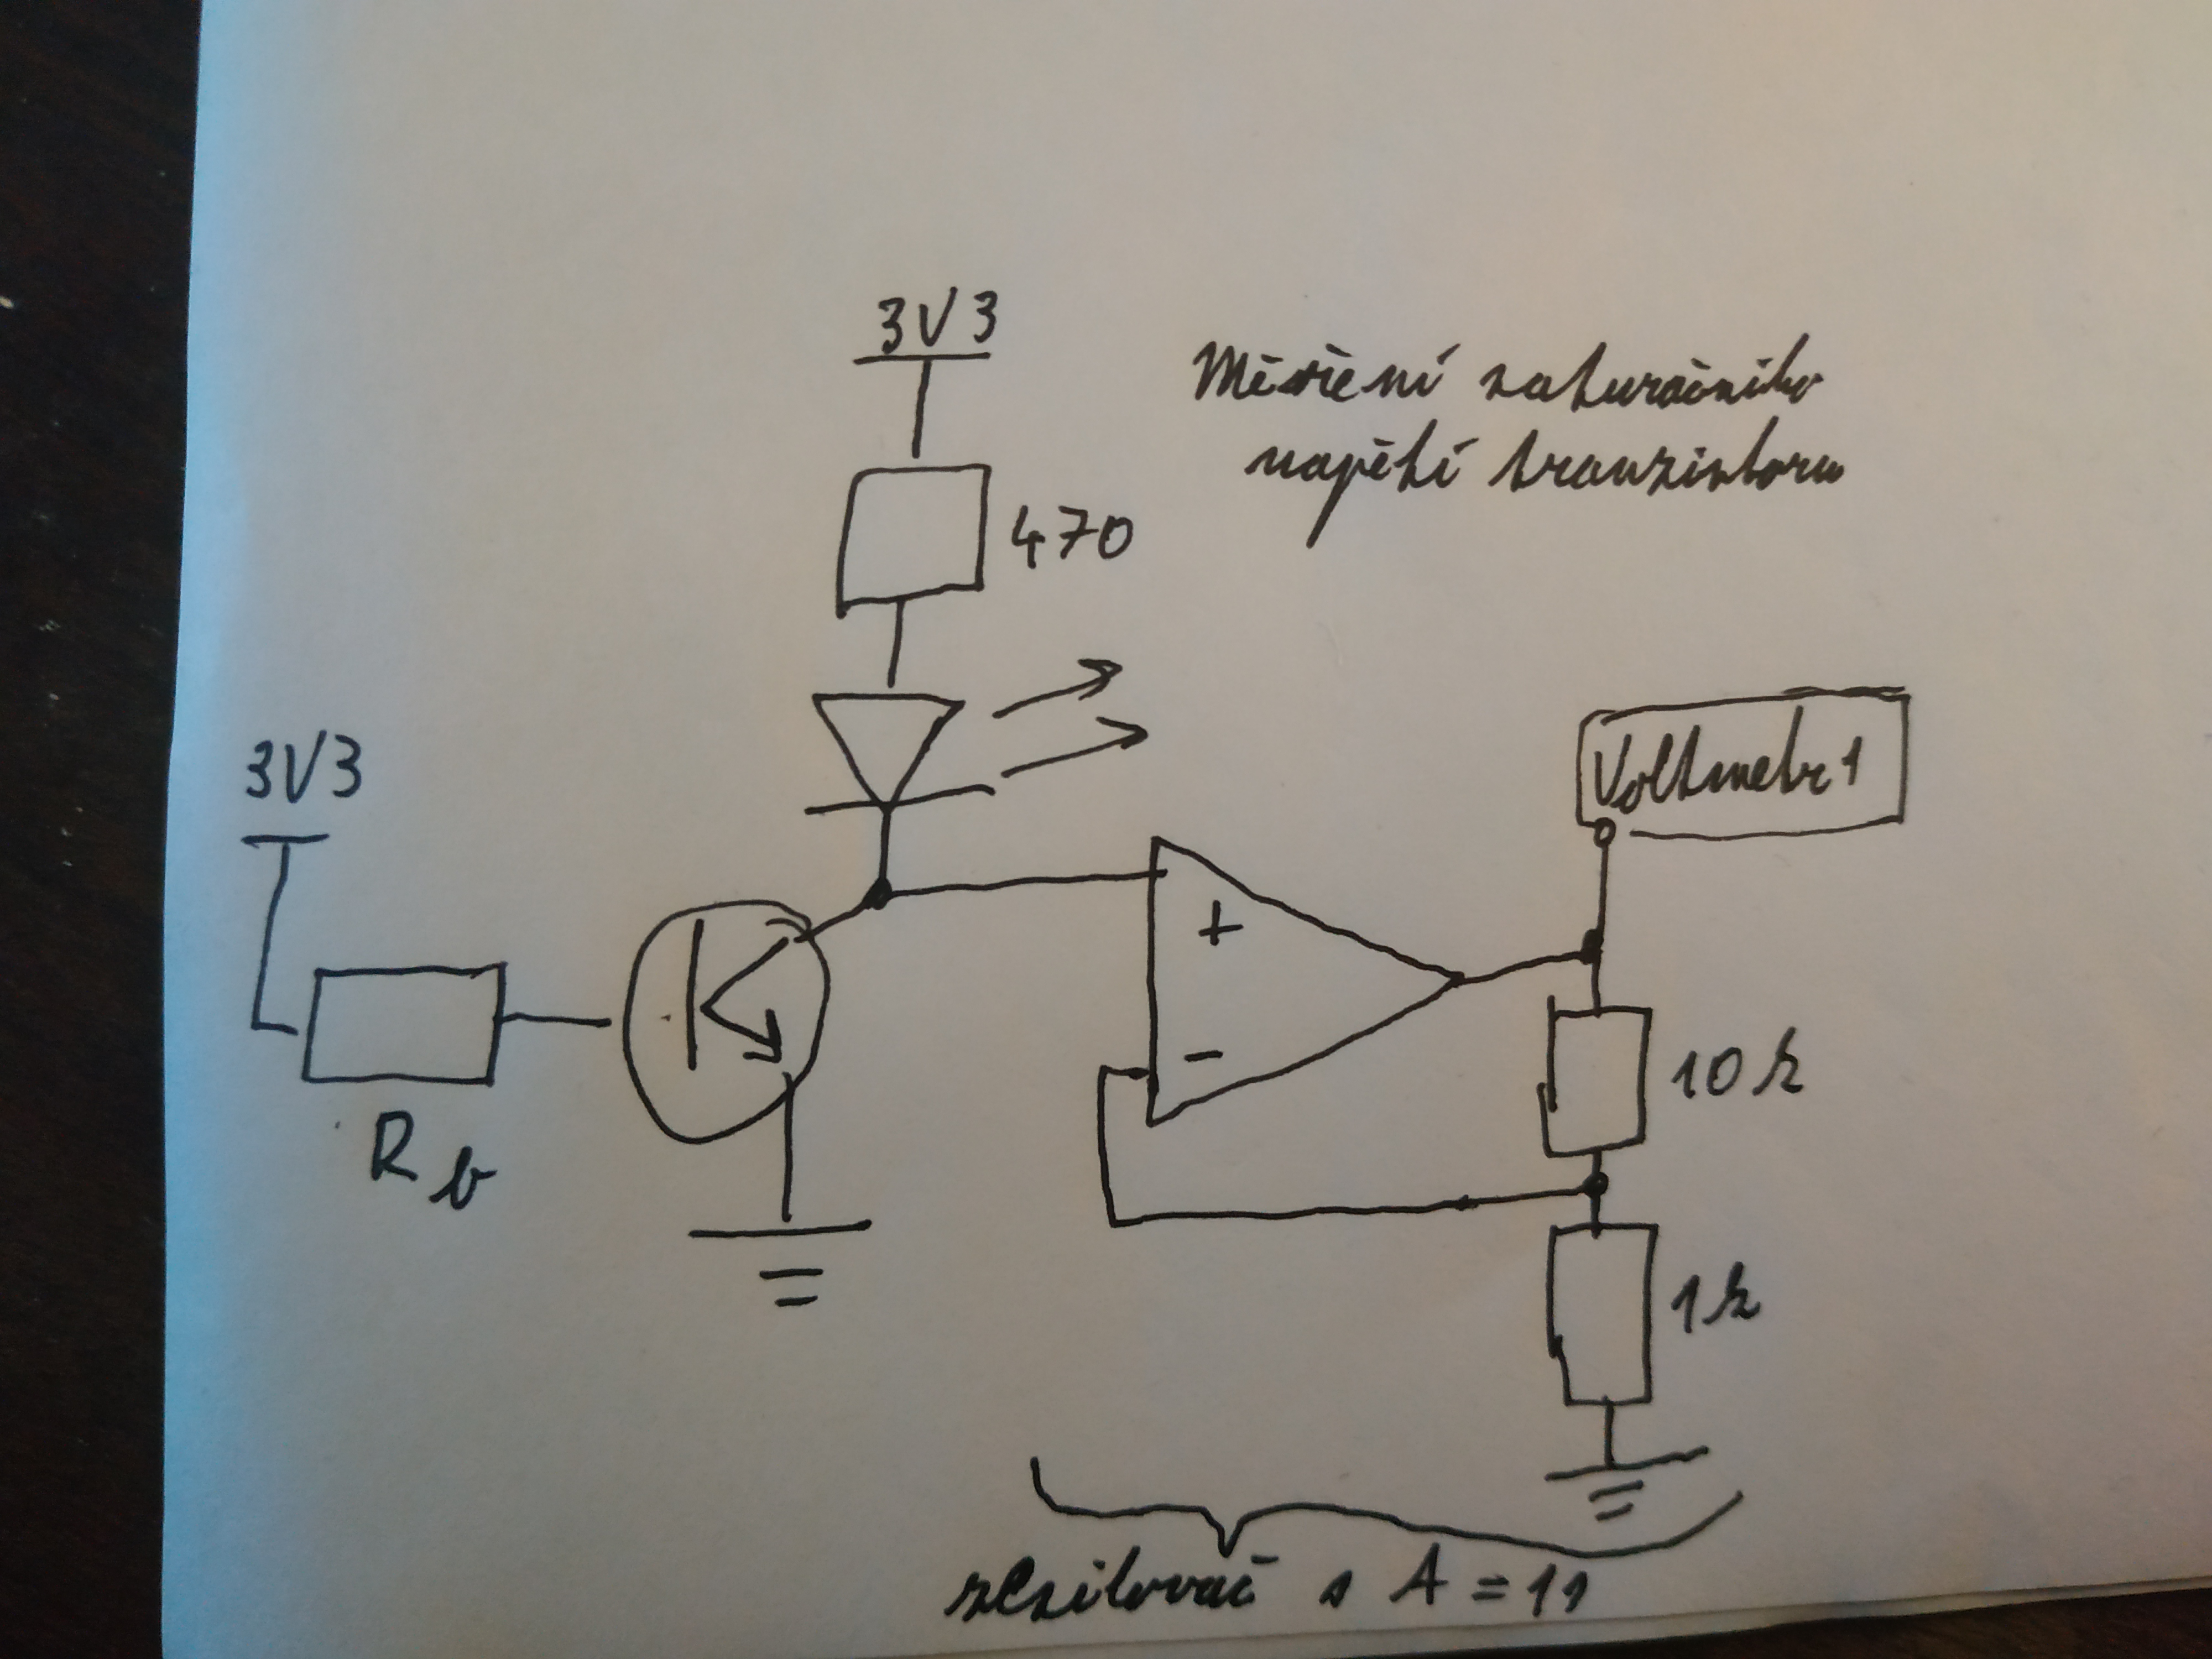 3V3
Měření saturačního
napětí tranzistoru
470
3V3
Voltmetr 1
+
-
10k
Rb
1k
zesilovač s A = 11